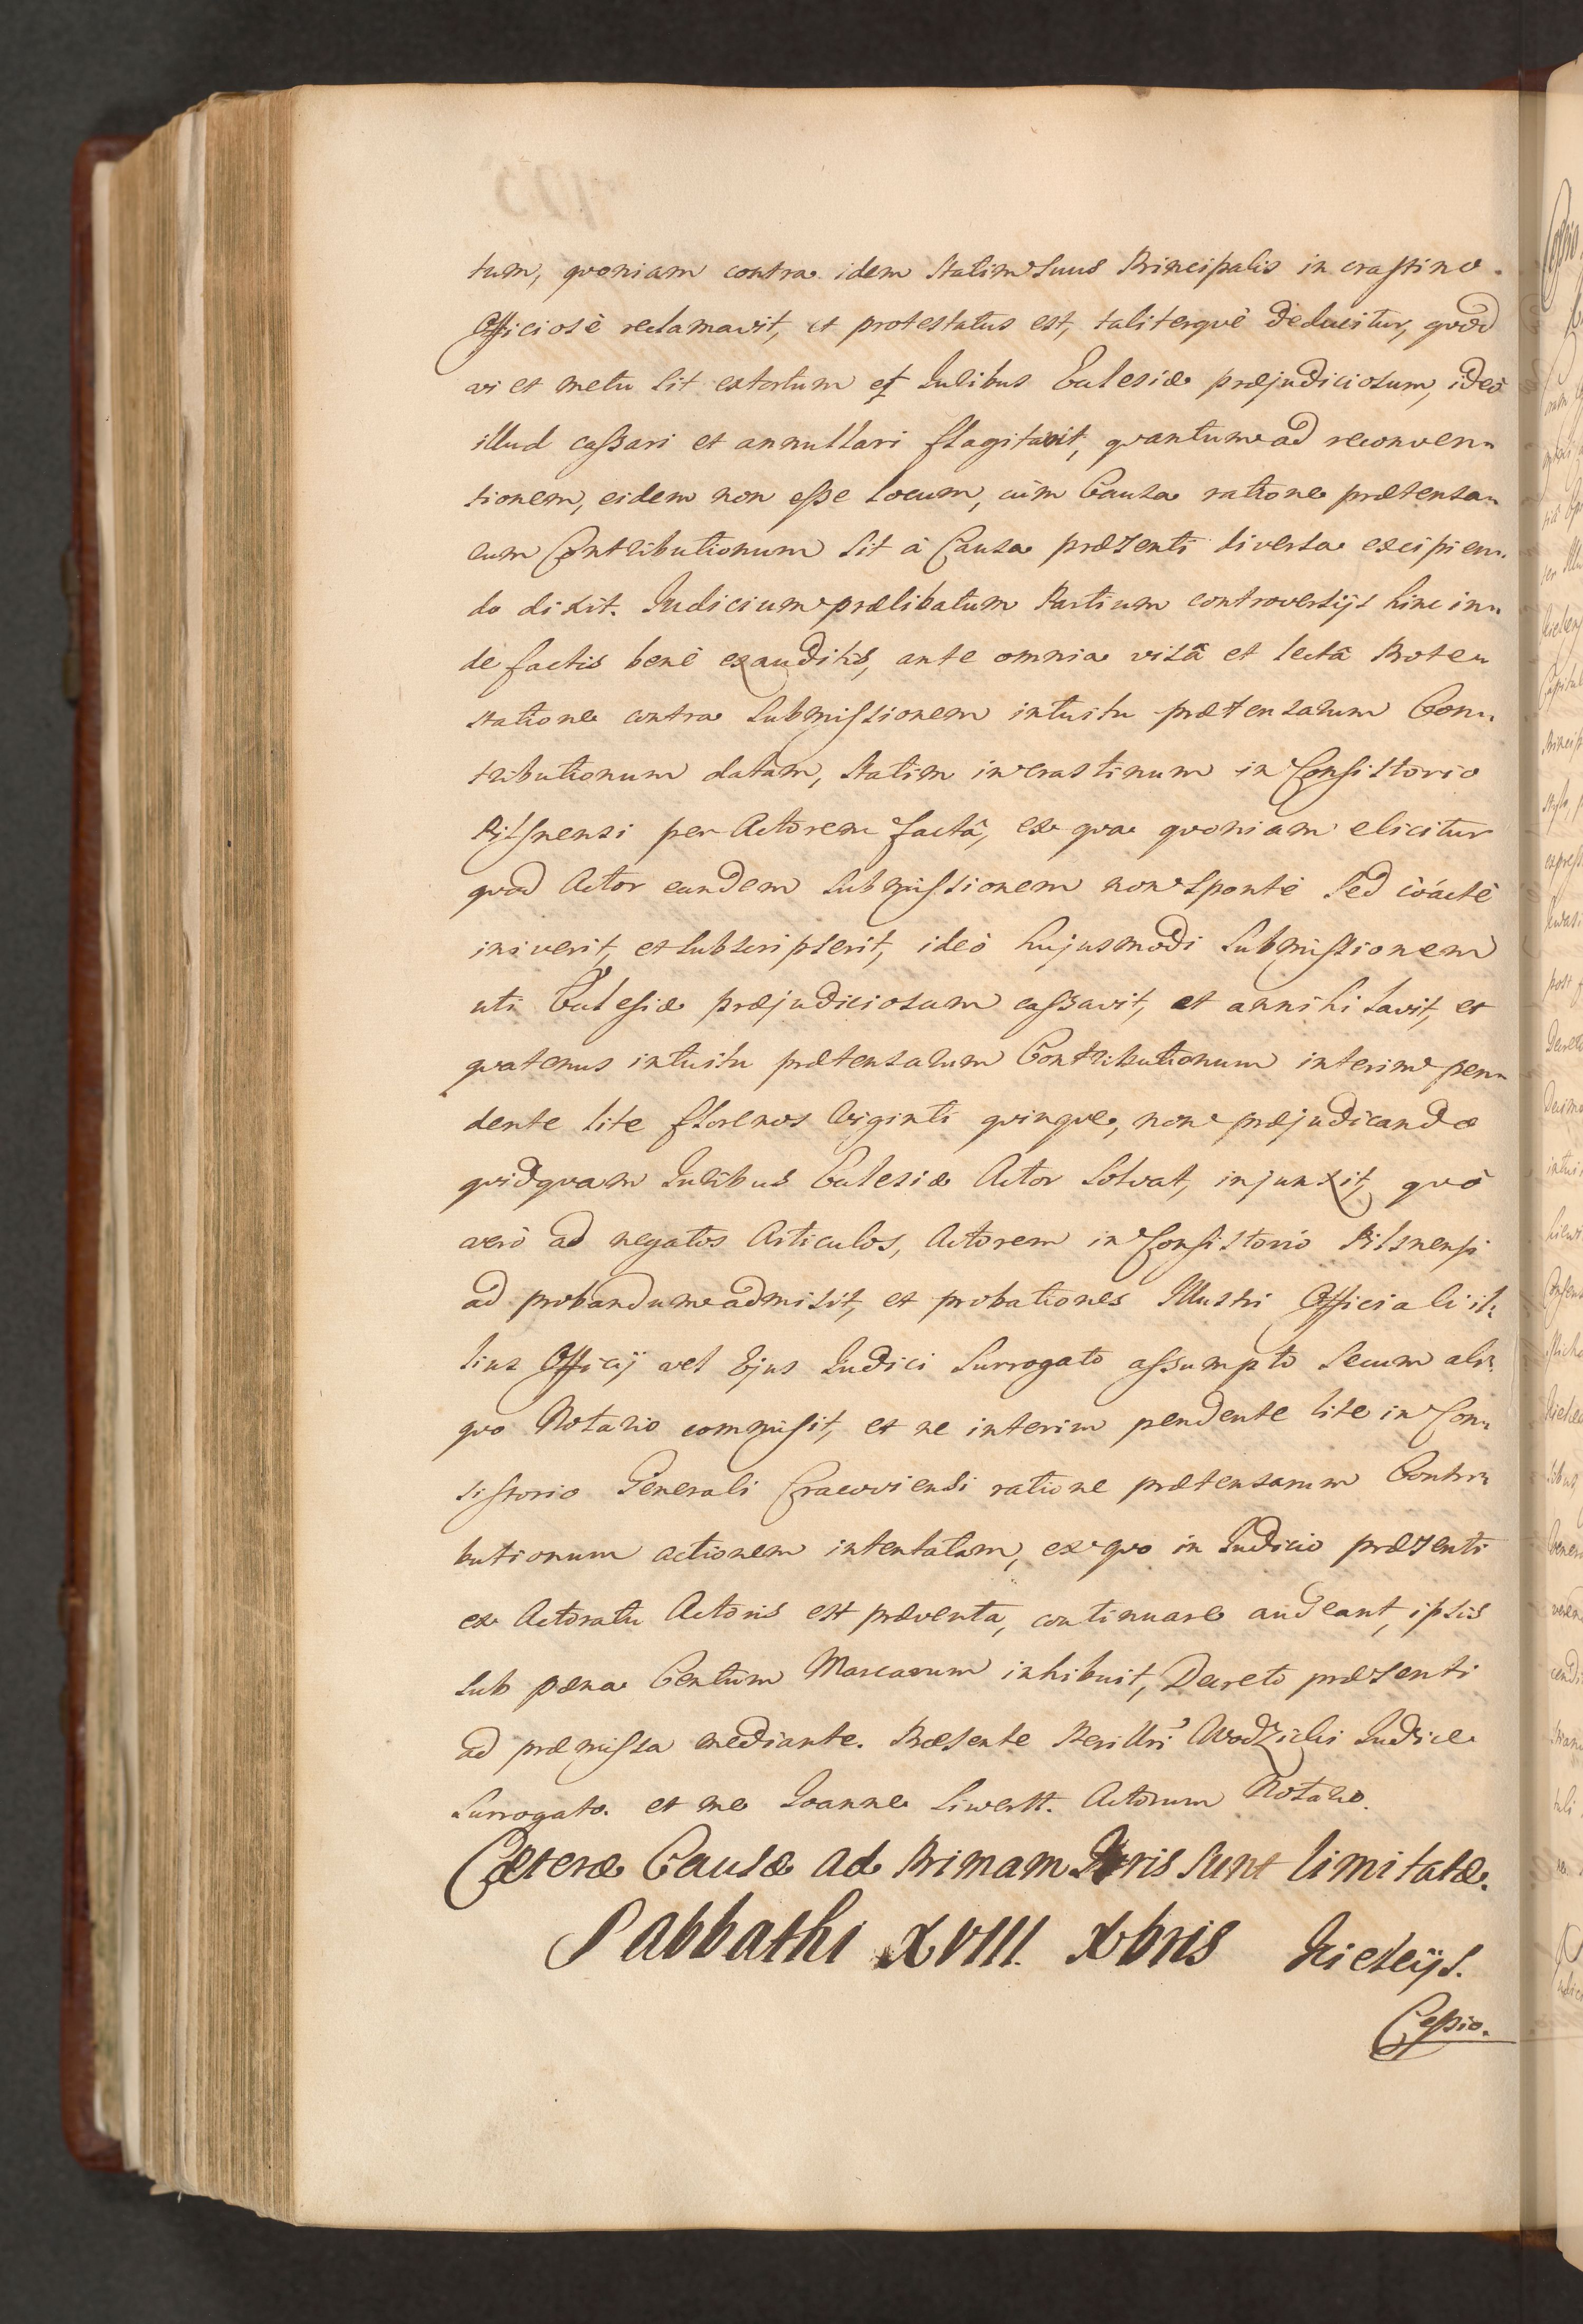 tum, quoniam contra idem statim suus Principalis in crastino
Officiosè reclamavit, et protestatus est, taliterquè deducitur, quòd
vi et metu sit extortum et Juribus Ecclesiæ præjudiciosum, ideò
illud cassari et annullari flagitavit, quantum ad reconven-
tionem, eidem non esse locum, cùm Causa ratione prætensa-
rum Contributionum sit à Causa præsenti diversa excipien-
do dixit. Judicium prælibatum Partium controversijs hinc in-
de factis benè exauditis, ante omnia visâ et lectâ Prote-
statione contra submissionem intuitu prætensarum Con-
tributionum datam, statim in crastinum in Consistorio
Pilsnensi per Actorem factâ, ex qua quoniam elicitur
quod Actor eandem submissionem non spontè sed coáctè
iniverit, et subscripserit, ideò hujusmodi submissionem
uti Ecclesiæ præjudiciosam cassavit, et annihilavit, et
quatenus intuitu prætensarum Contributionum interim pen-
dente lite florenos viginti quinque, non præjudicando
quidquam Juribus Ecclesiæ Actor solvat, injunxit, quò
verò ad negatos Articulos, Actorem in Consistorio Pilsnensi
ad probandum admisit, et probationes Illustri Officiali il-
lius Officij vel Ejus Judici Surrogato assumpto secum ali-
quo Notario commisit, et ne interim pendente lite in Con-
sistorio Generali Cracoviensi ratione prætensarum Contri-
butionum actionem intentatam, ex quo in Judicio præsenti
ex Actoratu Actoris est præventa, continuare audeant, ipsis
sub pæna Centum Marcarum inhibuit, Decreto præsenti
ad præmissa mediante. Præsente Perillri Wodzicki Judice
Surrogato. et me Joanne Siwertt. Actorum Notario.
Cæteræ Causæ ad Primam Juris sunt limitatæ.
Sabbathi XVIII. Xbris Kielcijs.
Cessio.